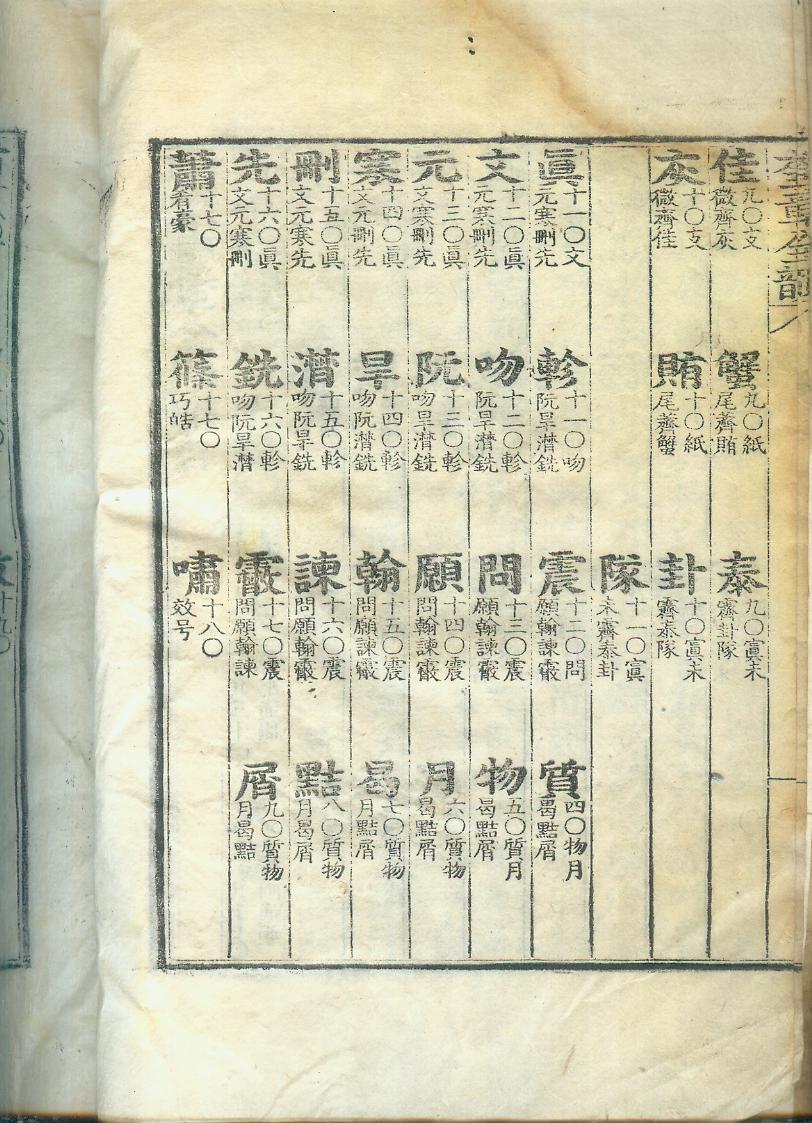 奎章全韻
佳 九〇支微齊灰 蟹 九〇紙尾薺賄 泰 九〇寘未霽卦隊
灰 十〇支微齊佳 賄 十〇紙尾薺蟹 卦 十〇寘未霽泰隊
隊 十一〇寘未霽泰卦
眞 十一〇文元寒刪先 軫 十一〇吻阮旱潸銑 震 十二〇問願翰諫霰 質 四〇物月曷黠屑
文 十二〇眞元寒刪先 吻 十二〇軫阮旱潸銑 問 十三〇震願翰諫霰 物 五〇質月曷黠屑
元 十三〇眞文寒刪先 阮 十三〇軫吻旱潸銑 願 十四〇震問翰諫霰 月 六〇質物曷黠屑
寒 十四〇眞文元刪先 旱 十四〇軫吻阮潸銑 翰 十五〇震問願諫霰 曷 七〇質物月黠屑
刪 十五〇眞文元寒先 潸 十五〇軫吻阮旱銑 諫 十六〇震問願翰霰 黠 八〇質物月曷屑
先 十六〇眞文元寒刪 銑 十六〇軫吻阮旱潸 霰 十七〇震問願翰諫 屑 九〇質物月曷黠
蕭 十七〇肴豪 篠 十七〇巧皓 嘯 十八〇效号
十九〇